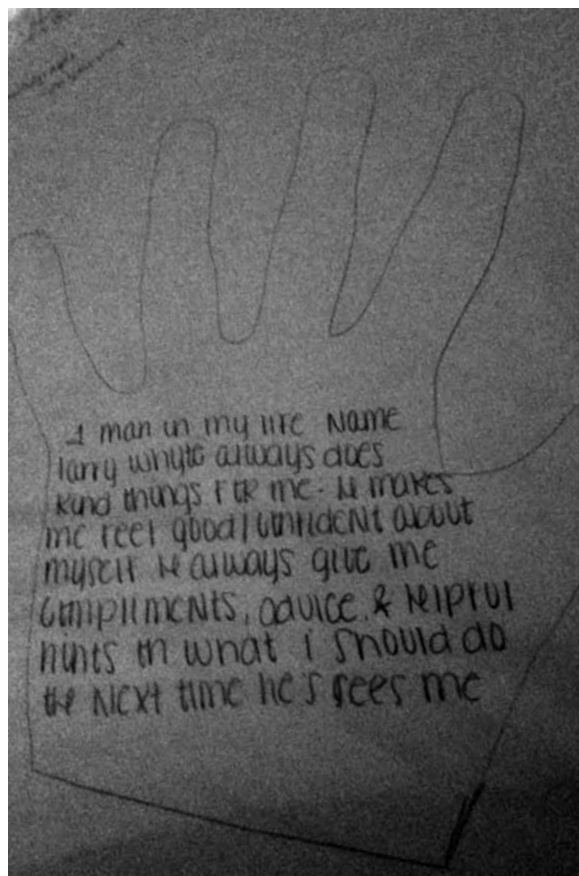 A man in my life Name
larry whyte always does
kind things for me. He makes
me feel good/confident about
myself He always give me
compliments, advice & Helpful
hints on what i should do
the Next time he's sees me